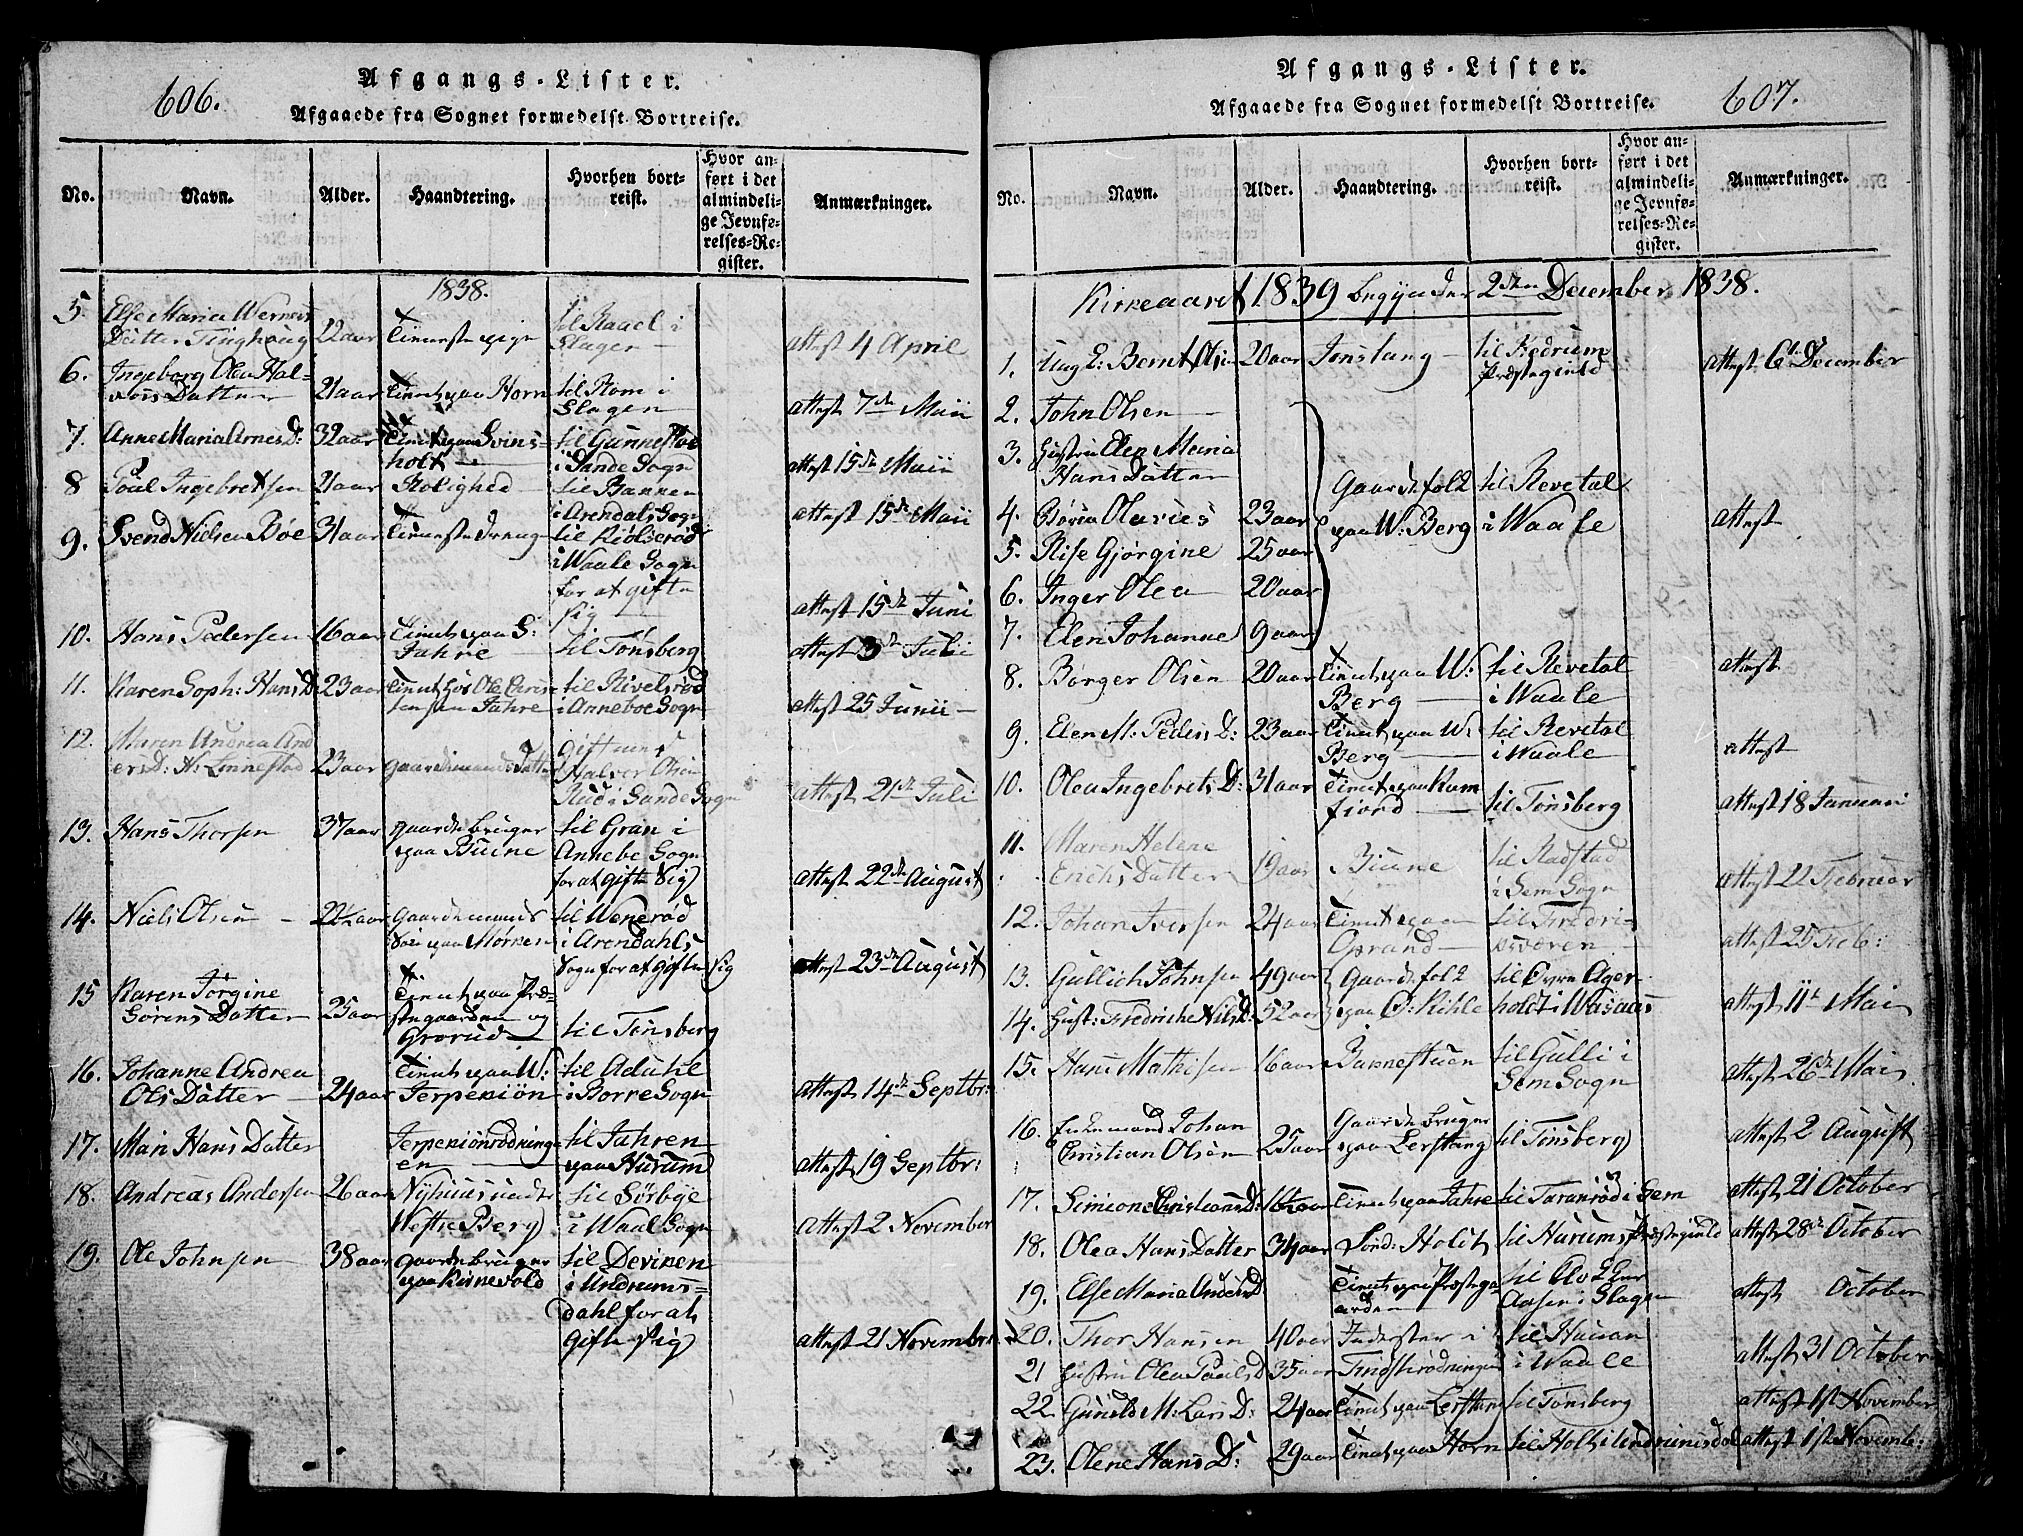 606.
Afgangs-Lister.
Afgaaede fra Sognet formedelst Bortreise.
No. Navn. Alder. Haandtering. Hvorhen bortreist. Hvor anført i det almindelige Jevnførelses-Register. Anmærkninger.
1838.
5. Else Maria Werners
Datter Tinghoug 22 aar Tieneste pige til Raael i
Slagen attest 4 April
6. Ingeborg Olea Hal=
vors Datter 21 aar Tient paa Horn til Rom i
Slagen attest 7de Maii
7. Anne Maria Arnes D: 32 aar Tient paa Svins=
holt til Gunnestad
i Sande Sogn attest 15de Maii
8 Poul Ingebretsen 21 aar Rolighed til Bannen
i Arendals Sogn attest 15de Maii
9. Svend Nielsen Bøe 31 aar Tieneste dreng til Kiolserød
i Waale Sogn
for at gifte
sig attest 15de Juni
10. Hans Pedersen 16 aar Tient paa S:
Jahre til Tønsberg attest 3de Juli
11. Karen Soph: Hans D 23 aar Tient hos Ole Chris=
tensen Jahre til Rivelsrød
i Anneboe Sogn attest 25 Junii
12. Maren Andrea And
ers D: N: Linnestad 23 aar gaardmands Datter Gift med
Halvor Olsen
Rud i Sande Sogn attest 21de Juli
13. Hans Thorsen 37 aar gaardebruger
paa Buene til Gran i
Annebo Sogn
for at gifte Sig attest 22de August
14. Niels Olsen 22½ aar Gaardemands
Søn paa Mørken til Wenerød
i Arendahls
Sogn for at Gifte sig attest 23de August
15 Karen Jørgine
Sørens Datter 25 aar Tient paa Præ=
stegaarden og
Grorud til Tønsberg
16. Johanne Andrea
Ols Datter 24 aar Tient paa W:
Jerpeniøn til Adahl
i Borre Sogn attest 14de Septbr:
17. Mari Hans Datter Jerpeniønrødning=
en til Jahren
paa Hurum attest 19 Septbr:
18. Andreas Andersen 26 aar Nyhuus under
Westre Berg til Sørbye
i Waal Sogn attest 2 November
19. Ole Johnsen 38 aar gaardebruger
paa Kirkevold til Deviken
i Undrums=
dahl for at
gifte sig attest 21 November
607.
Afgangs-Lister.
Afgaaede fra Sognet formedelst Bortreise.
No. Navn. Alder. Haandtering. Hvorhen bortreist. Hvor anført i det almindelige Jevnførelses-Register. Anmærkninger.
Kirkeaaret 1839 begynder 2den December 1838.
1. Ung E: Bernt Olsen 20 aar Jonstang til Hedrum
Præstegield attest 6te December
2. John Olsen
3. Hustru Elen Maria
Hans Datter Gaardefolk til Revetal
4. Børea Olaries 23 aar paa W: Berg i Waale attest
5. Rise Gjørgine 25 aar
6. Inger Olea 20 aar
7. Elen Johanne 9 aar
8. Børger Olsen 20 aar Tient paa W:
Berg til Revetal
i Waale attest
9. Elen M: Peders D: 23 aar Tient paa W:
Berg til Revetal
i Waale attest
10. Olea Ingebrets D: 31 aar Tient paa Ram
fiord til Tønsberg attest 18 Januari
11. Maren Helene
Erichs Datter 19 aar Buene til Radstad
i Sem Sogn attest 22 Februar
12. Johan Iversen 24 aar Tient paa
Oprand til Frideri=
ksværen attest 25 Feb:
13. Gullich Johnsen 49 aar Gaardefolk til Øvre Ager=
14. Hust: Fredriche Nils D: 52 aar paa Ø: Kihle holdt i Wasaas attest 11te Mai
15. Hans Mathisen 16 aar Bakkestuen til Gulli i
Sem Sogn attest 26de Mai
16. Enkemand Johan
Christian Olsen 25 aar Gaardebruger
paa Lerstang til Tønsberg attest 2 August
17. Simione Christians D: 16½ aar Tient paa Jahre til Taranrød i Sem attest 21 October
18. Olea Hans Datter 34 aar Sønd: Holdt til Hurums Præstegield attest 28de October
19. Else Maria Anders D Tient paa Præstega
arden til
Aasen i Slagen attest October
20. Thor Hansen 40 aar Inderster i til Hauan
21 Hustru Olea Pauls D 35 aar i Waale attest 31 October
22. Gunild M: Lars D: 24 aar Tient paa Lerstang til Tønsberg attest 1st November
23. Olene Hans D: 29 aar Tient paa Horn til Holt i Undrumsdal attest 1st Novemb: